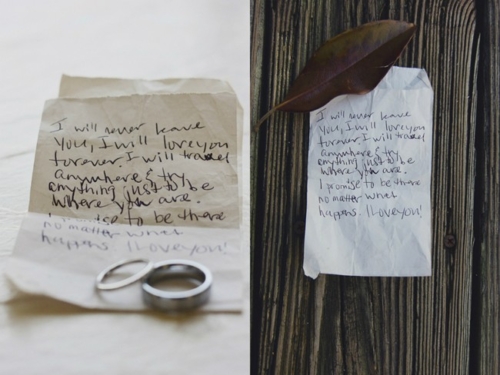 I will never leave
You, I will love you
forever. I will travel
anywhere & try
anything just to be
where you are.
I promise to be there
no matter what
happens. I Love you!
I will never leave
You, I will love you
forever. I will travel
anywhere & try
anything just to be
where you are.
I promise to be there
no matter what
happens. I Love you!